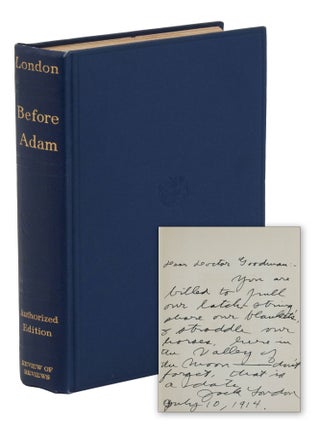 London
Before
Adam
Authorized
Edition
REVIEW OF
REVIEWS
Dear Doctor Goodman:-
You are
billed to pull
our latch-string
share our blankets,
& straddle our
horses, here in
the Valley of
the Moon — don't
forget, that is
a date.
Jack London
July 10, 1914.